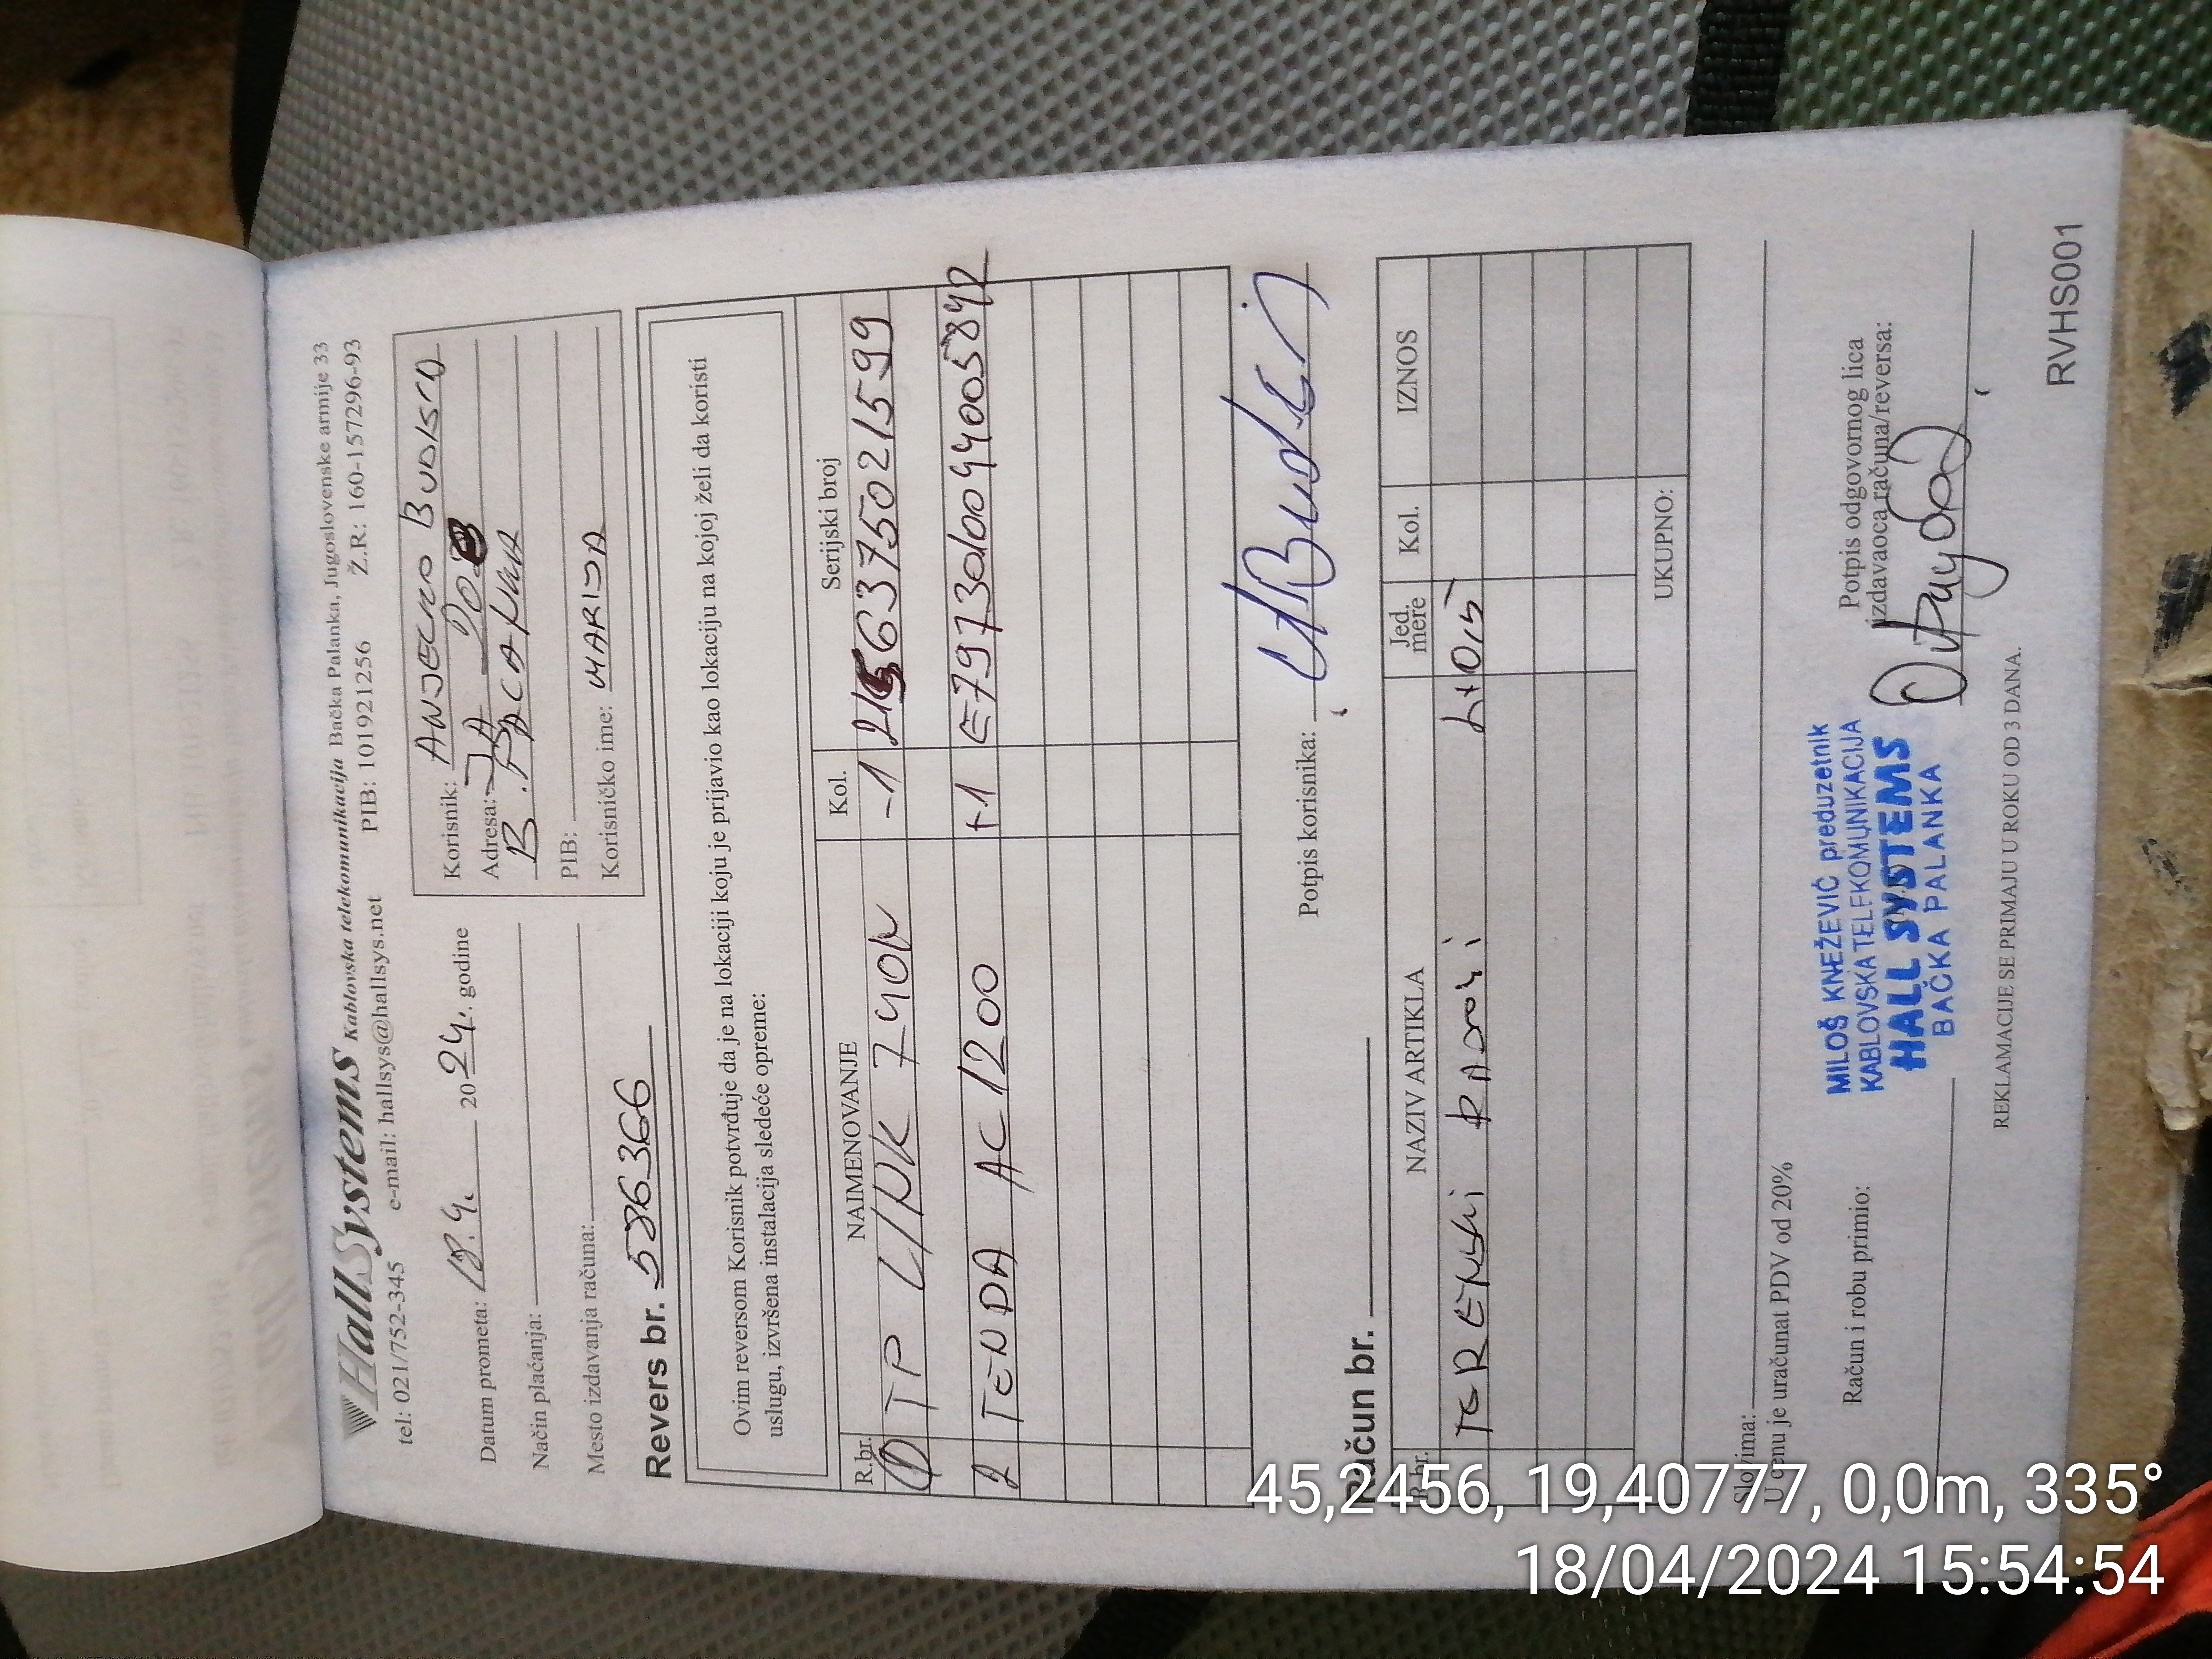 HallSystems Kablovska telekomunikacija Bačka Palanka, Jugoslovenske armije 33
tel: 021/752-345 e-mail: hallsys@hallsys.net PIB: 101921256 Ž.R: 160-157296-93
Datum prometa: 18.4. 2024. godine
Način plaćanja:
Mesto izdavanja računa:
Korisnik:
Adresa: JA
B. PALANKA
PIB:
Korisničko ime: MARIJA
Revers br. 586366
Ovim reversom Korisnik potvrđuje da je na lokaciji koju je prijavio kao lokaciju na kojoj želi da koristi
uslugu, izvršena instalacija sledeće opreme:
R.br. NAIMENOVANJE Kol. Serijski broj
1 TP LINK 740N -1
2 TENDA AC1200 +1
Potpis korisnika:
Račun br.
R.br. NAZIV ARTIKLA Jed. mere Kol. IZNOS
TERENSKI RADOVI
UKUPNO:
Slovima:
U cenu je uračunat PDV od 20%
Račun i robu primio:
MILOŠ KNEŽEVIĆ preduzetnik
KABLOVSKA TELEKOMUNIKACIJA
HALL SYSTEMS
BAČKA PALANKA
Potpis odgovornog lica
izdavaoca računa/reversa:
REKLAMACIJE SE PRIMAJU U ROKU OD 3 DANA.
RVHS001
45,2456, 19,40777, 0,0m, 335°
18/04/2024 15:54:54